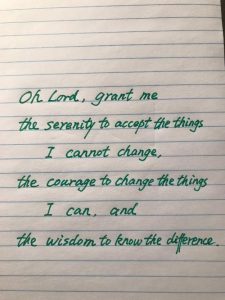 Oh Lord, grant me
the serenity to accept the things
I cannot change,
the courage to change the things
I can, and
the wisdom to know the difference.